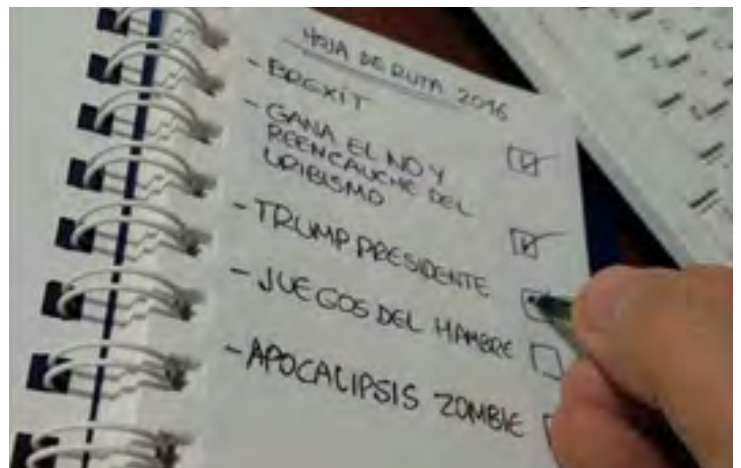 HOJA DE RUTA 2016
- BREXIT
- GANA EL NO Y
REENCAUCHE DEL
URIBISMO
- TRUMP PRESIDENTE
- JUEGOS DEL HAMBRE
- APOCALIPSIS ZOMBIE